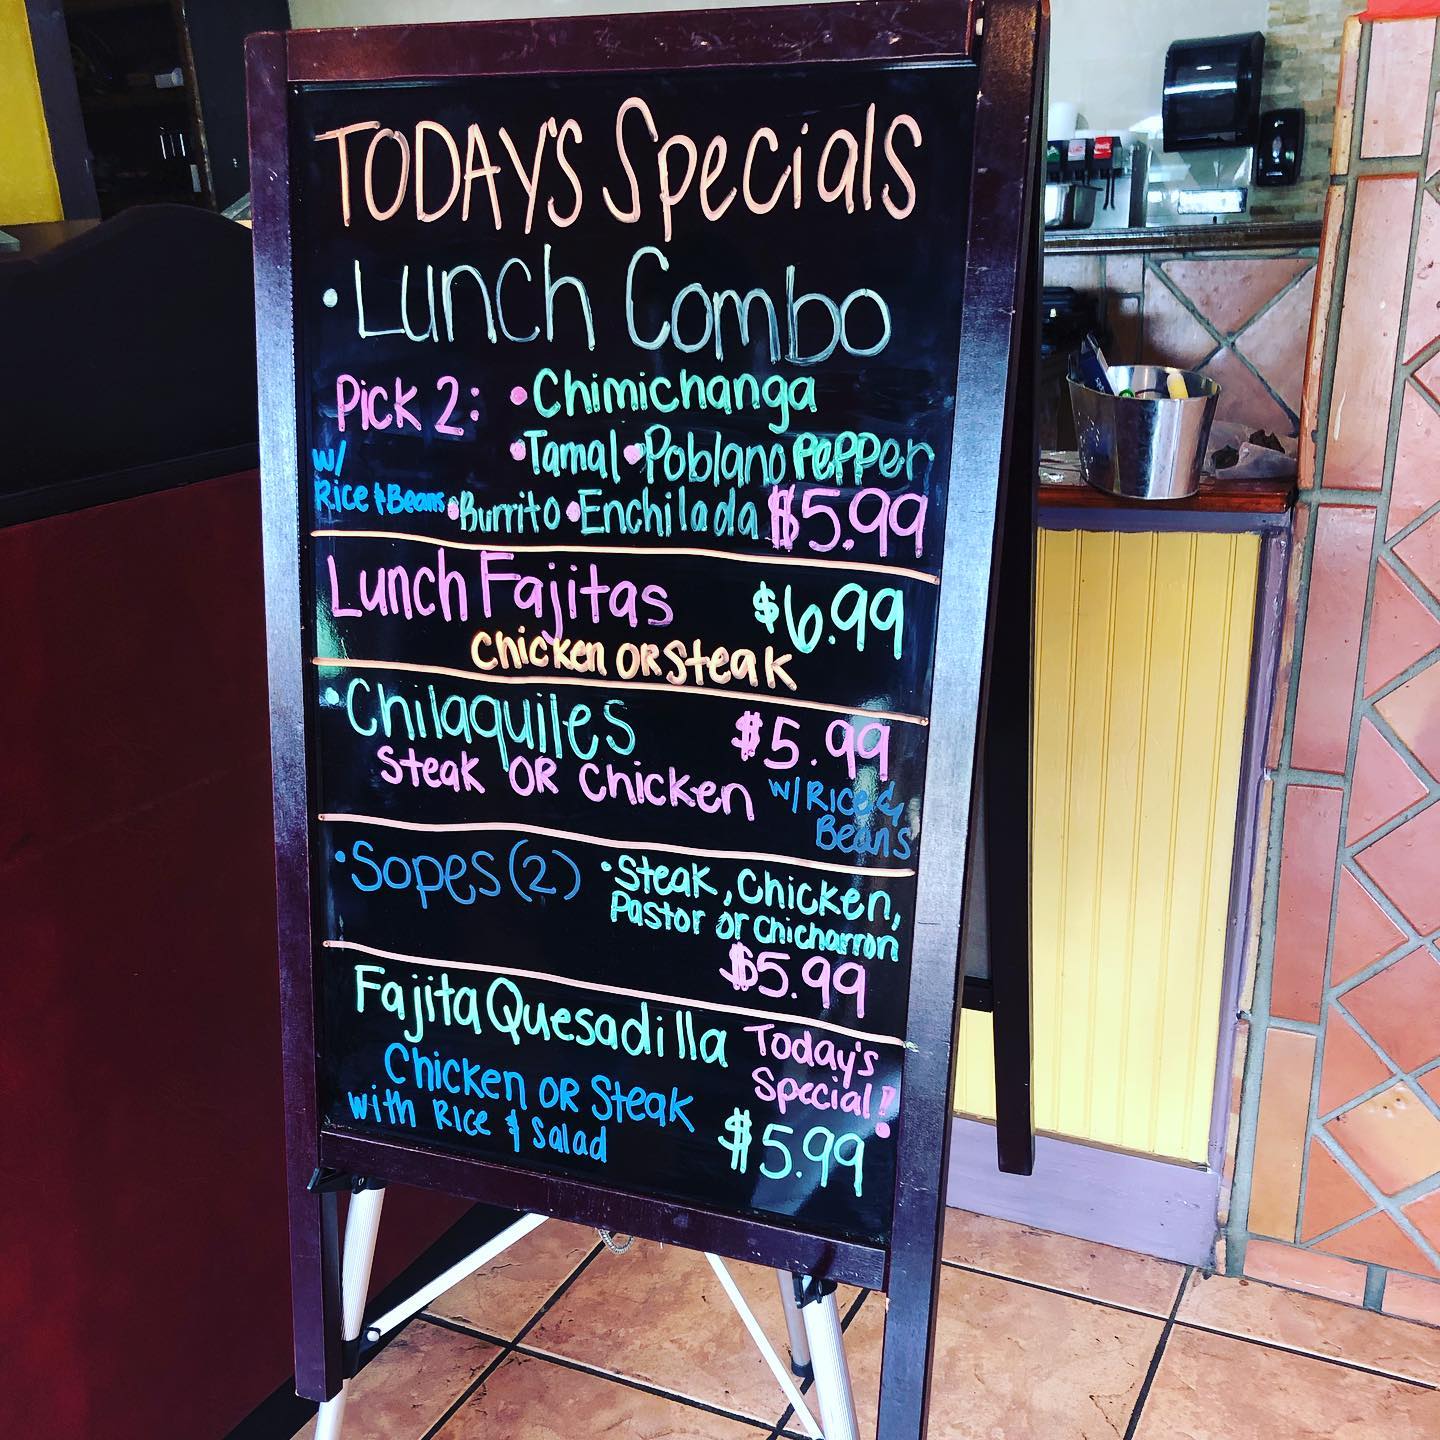 TODAY'S Specials
• Lunch Combo
Pick 2: • Chimichanga
• Tamal • Poblano Pepper
w/
Rice & Beans • Burrito • Enchilada $5.99
Lunch Fajitas $6.99
Chicken OR Steak
• Chilaquiles $5.99
Steak OR Chicken w/ Rice &
Beans
• Sopes (2) • Steak, Chicken,
Pastor or Chicharron
$5.99
Fajita Quesadilla Today's
Special!
Chicken OR Steak
with Rice & Salad $5.99